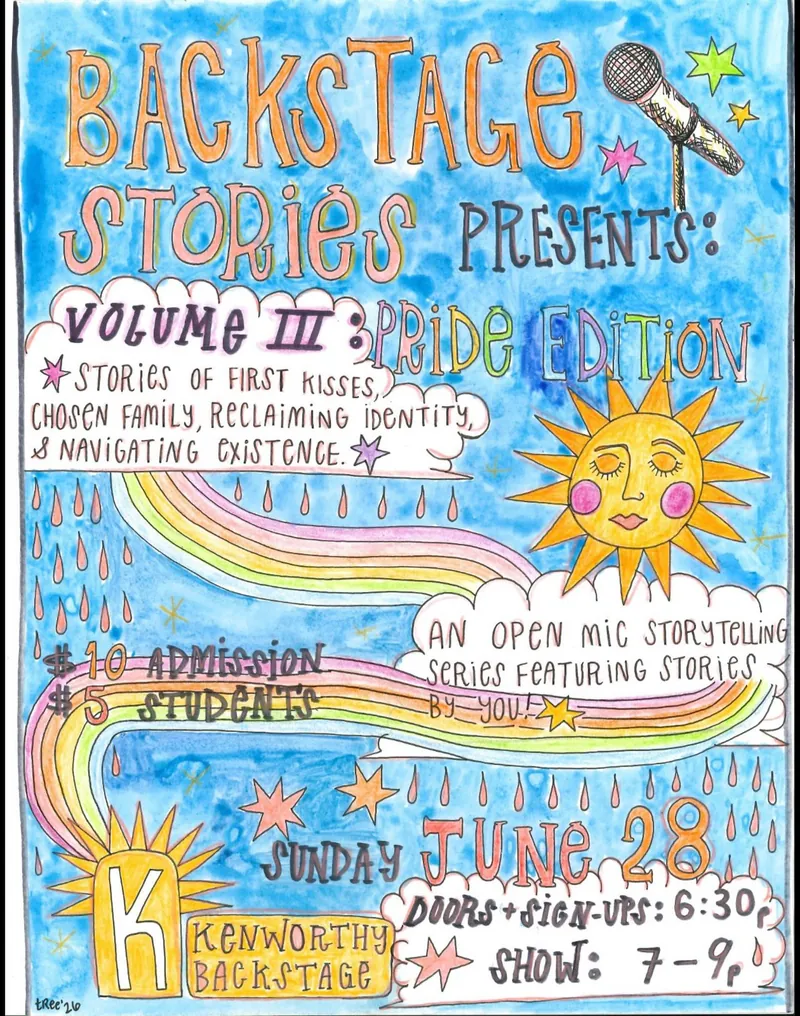 BACKSTAGE
STORIES PRESENTS:
VOLUME III: PRIDE EDITION
STORIES OF FIRST KISSES,
CHOSEN FAMILY, RECLAIMING IDENTITY,
& NAVIGATING EXISTENCE.
AN OPEN MIC STORYTELLING
SERIES FEATURING STORIES
BY YOU!
$10 ADMISSION
$5 STUDENTS
SUNDAY JUNE 28
DOORS + SIGN-UPS: 6:30p
SHOW: 7-9p
K
KENWORTHY
BACKSTAGE
tREE'26